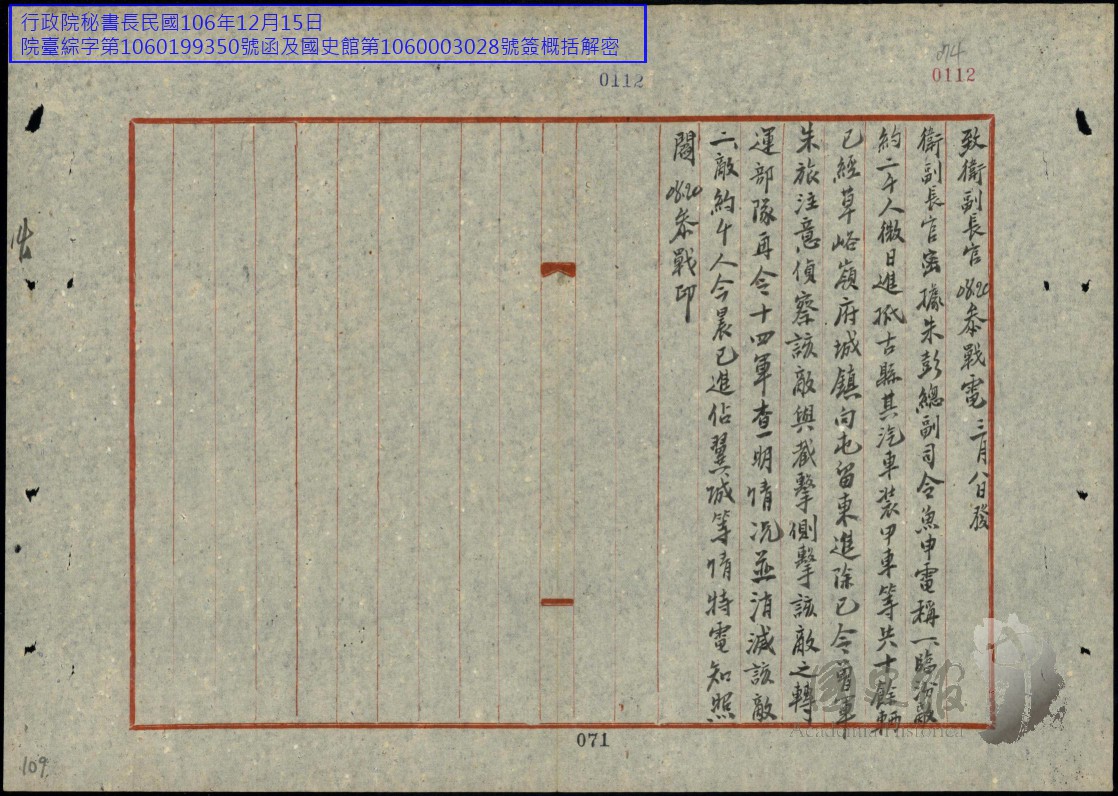 行政院秘書長民國106年12月15日
院臺綜字第1060199350號函及國史館第1060003028號簽概括解密
074
0112
0112
致衛副長官0820叅戰電三月八日發
衛副長官密據朱彭總副司令魚申電稱一臨汾敵
約二千人微日進抵古縣其汽車裝甲車等共十餘輛
已經草峪嶺府城鎮向屯留東進除已令曾軍
朱旅注意偵察該敵與截擊側擊該敵之轉
運部隊再令十四軍查明情况並消滅該敵
二敵約千人今晨已進佔翼城等情特電知照
閻0820叅戰印
071
109
國史館
Academia Historica